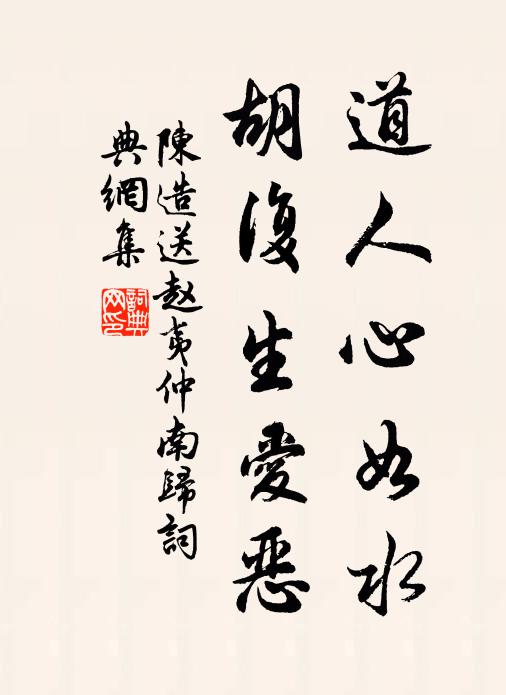 道人心如水
胡復生愛惡
陳造送赵夷仲南歸詞
典網集
詞典網印